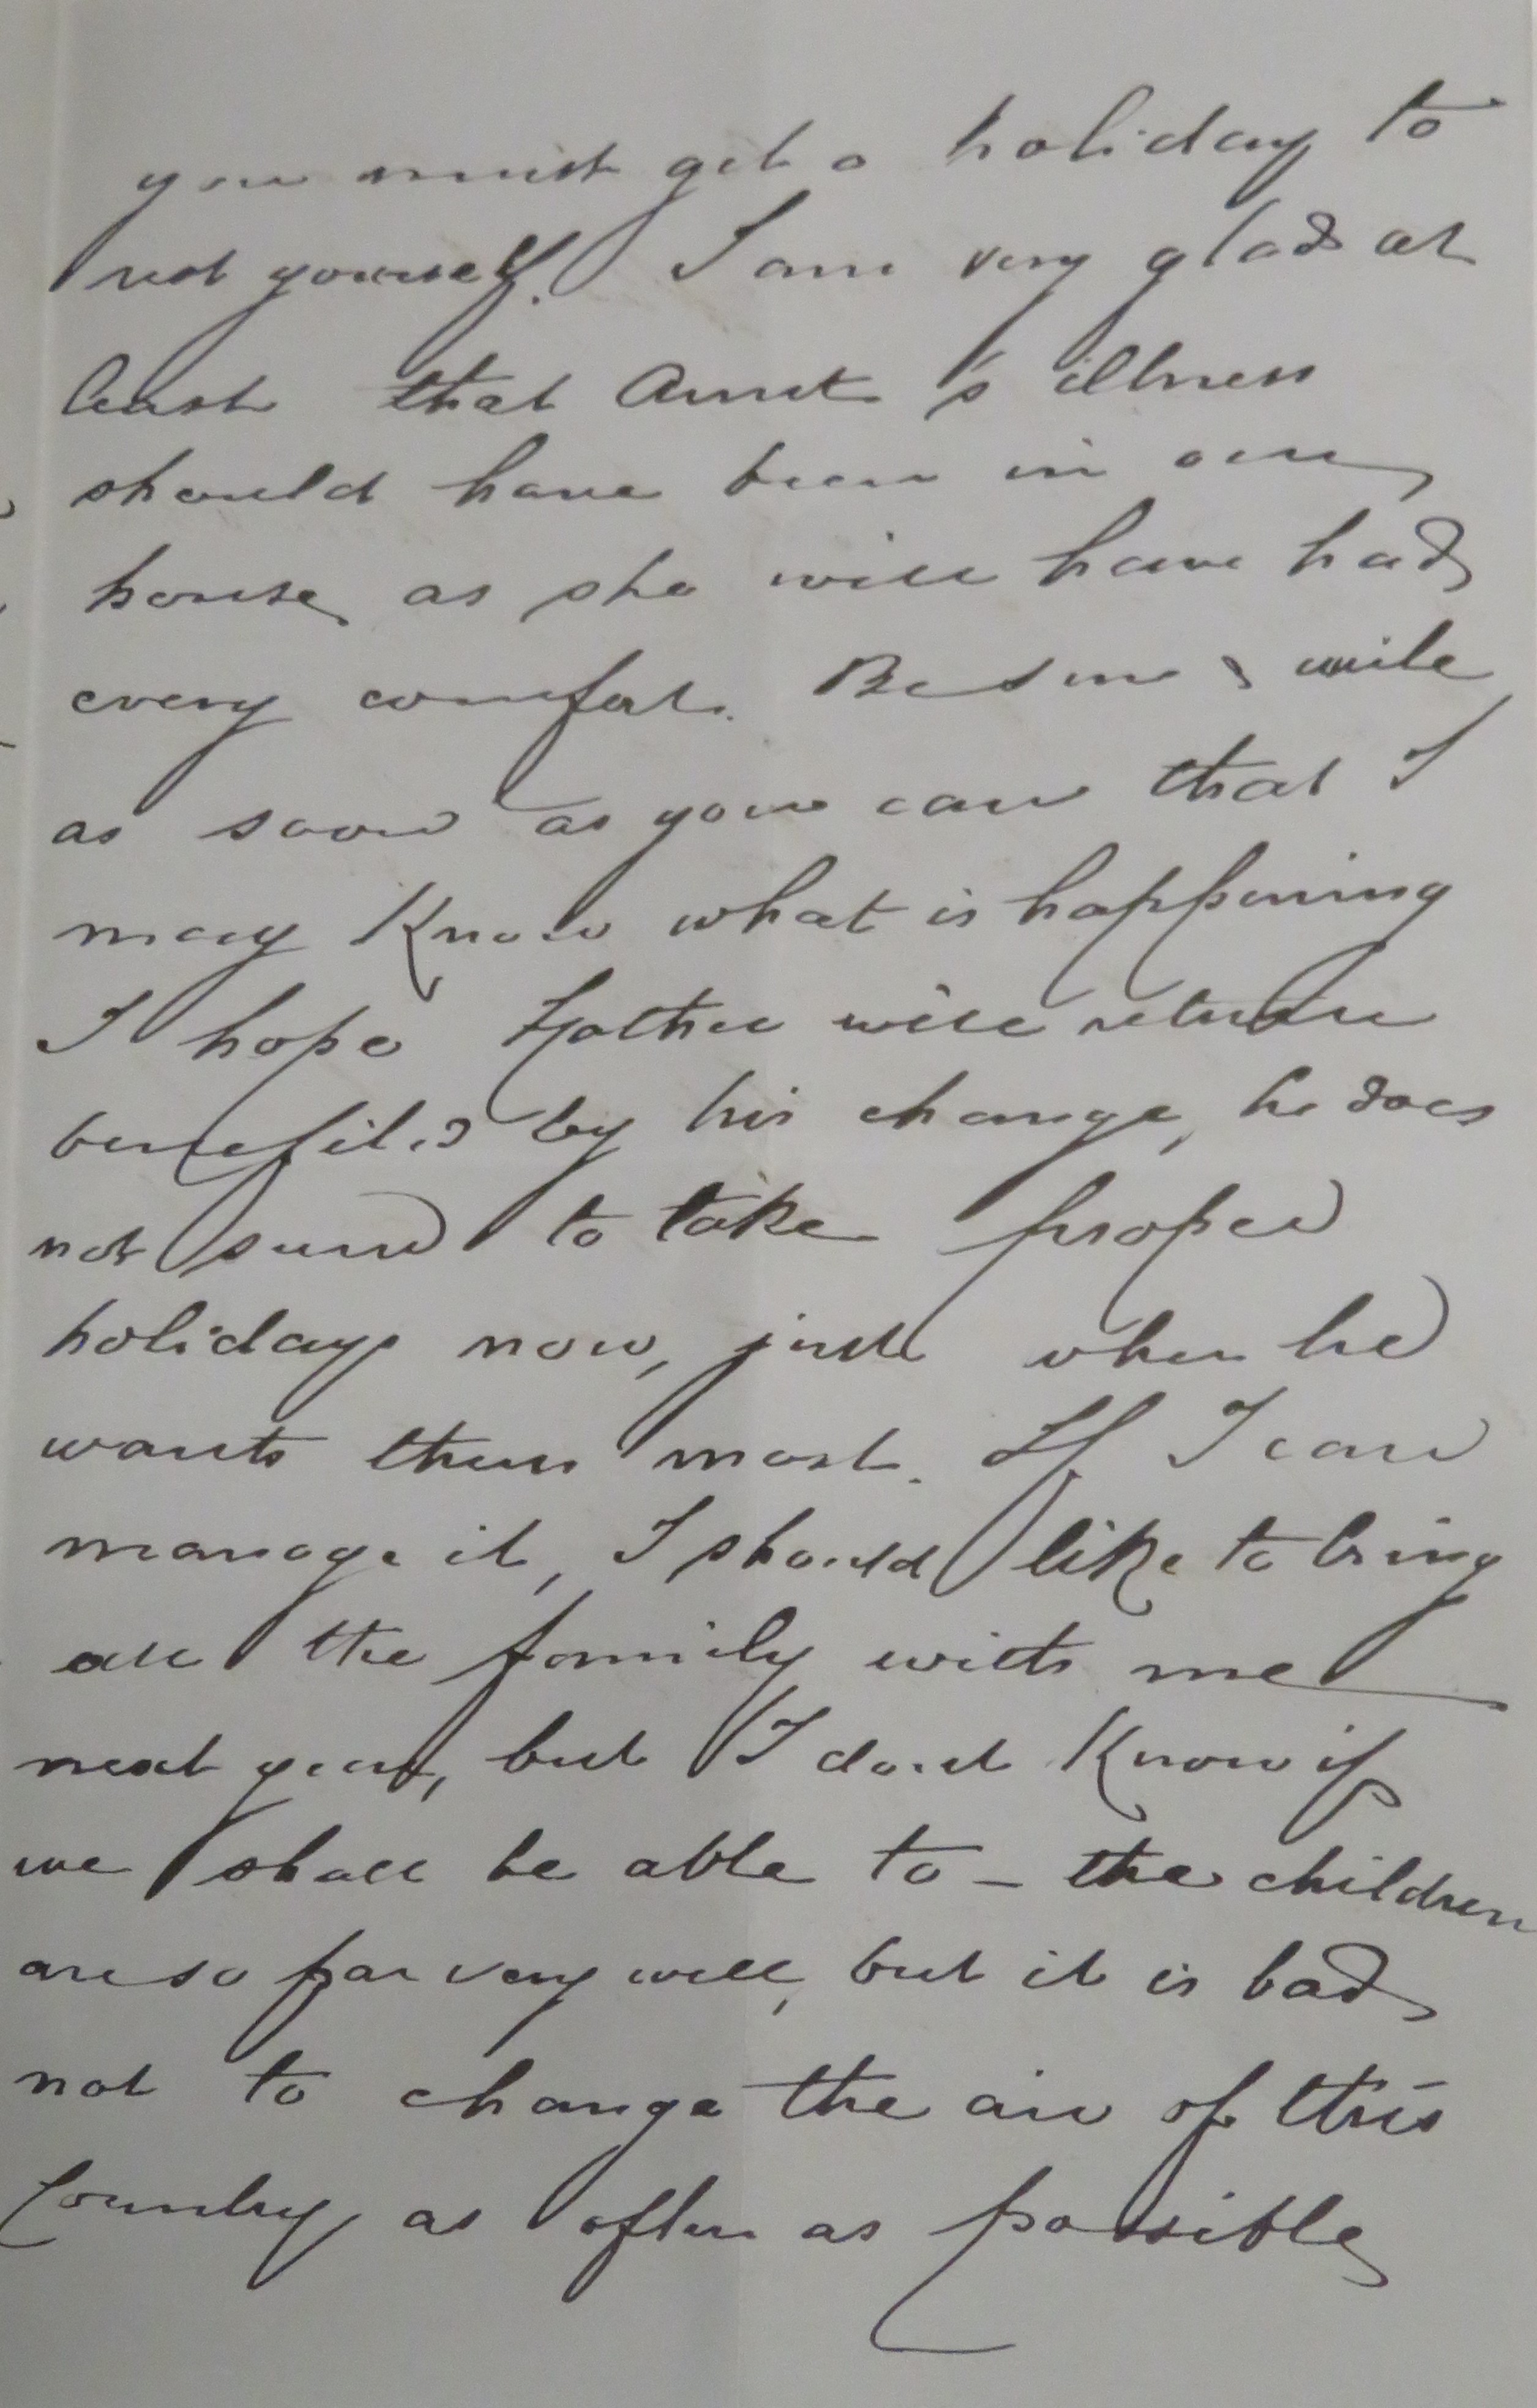 you must get a holiday to
rest yourself. I am very glad at
least that Aunt's illness
should have been in our
house, as she will have had
every comfort. Be sure & write
as soon as you can that I
may know what is happening
I hope Father will return
benefited by his change, he does
not seem to take proper
holidays now, just when he
wants them most. If I can
manage it, I should like to bring
all the family with me
next year, but I dont know if
we shall be able to - the children
are so far very well, but it is bad
not to change the air of this
Country, as often as possible